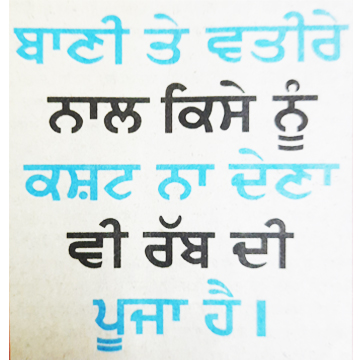 ਬਾਣੀ ਤੇ ਵਤੀਰੇ
ਨਾਲ ਕਿਸੇ ਨੂੰ
ਕਸ਼ਟ ਨਾ ਦੇਣਾ
ਵੀ ਰੱਬ ਦੀ
ਪੂਜਾ ਹੈ।